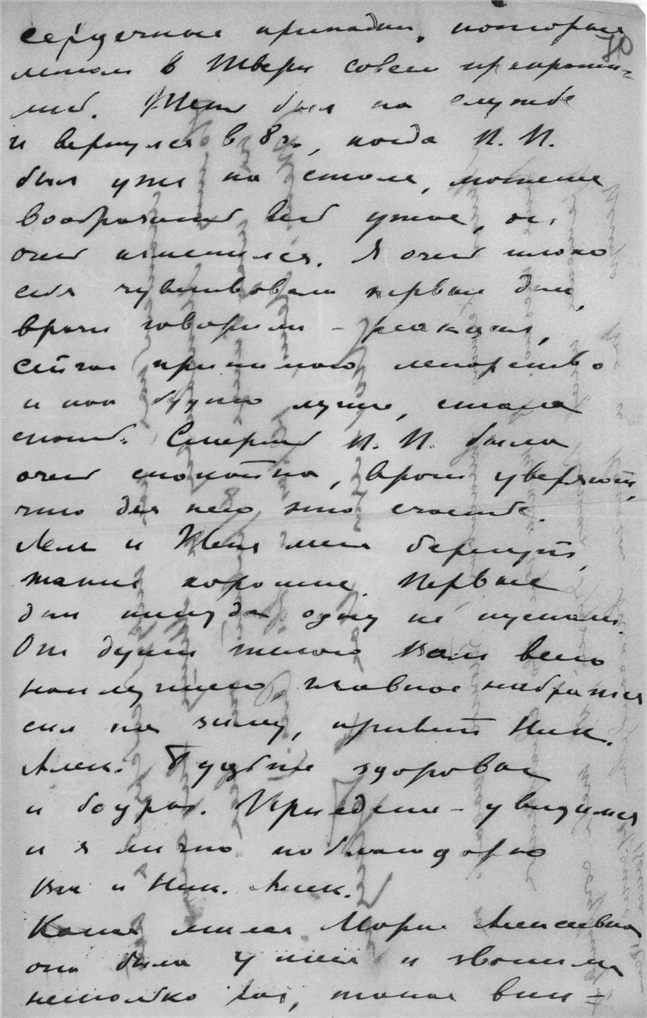 сердечные припадки, которые 10
летом в Твери совсем прекрати-
лись. Женя был на службе
и вернулся в 8 ч., когда П. П.
был уже на столе, можете
вообразить его ужас, он
очень изменился. Я очень плохо
себя чувствовала первые дни,
врачи говорили – реакция,
сейчас принимаю лекарство
и как будто лучше, стала
спать. Смерть П. П. была
очень спокойна, врачи уверяют,
что для него это счастье.
Леля и Женя меня берегут,
такие хорошие. Первые
дни никуда одну не пускали.
От души желаю Вам всего
наилучшего, главное набраться
сил на зиму, привет Ник.
Алек. Будьте здоровы
и бодры. Приедете – увидимся
и я лично поблагодарю
Вас и Ник. Алек.
Какая милая Мария Алексеевна
она была у меня и звонила
несколько раз, такая вни=